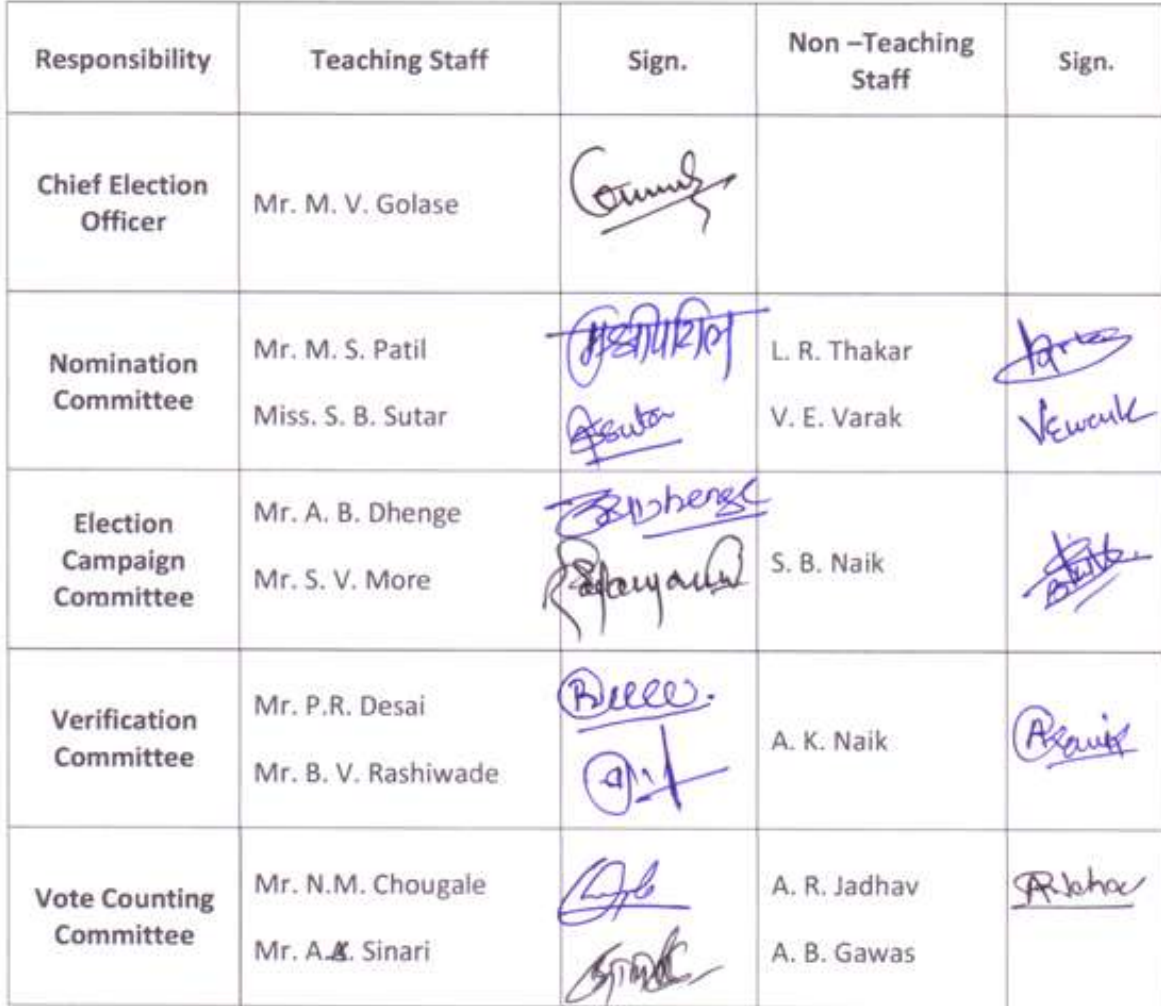 Responsibility Teaching Staff Sign. Non –Teaching Staff Sign.
Chief Election Officer Mr. M. V. Golase
Nomination Committee
Mr. M. S. Patil L. R. Thakar
Miss. S. B. Sutar V. E. Varak
Election Campaign Committee
Mr. A. B. Dhenge
Mr. S. V. More
S. B. Naik
Verification Committee
Mr. P.R. Desai
Mr. B. V. Rashiwade
A. K. Naik
Vote Counting Committee
Mr. N.M. Chougale A. R. Jadhav
Mr. A. Sinari A. B. Gawas